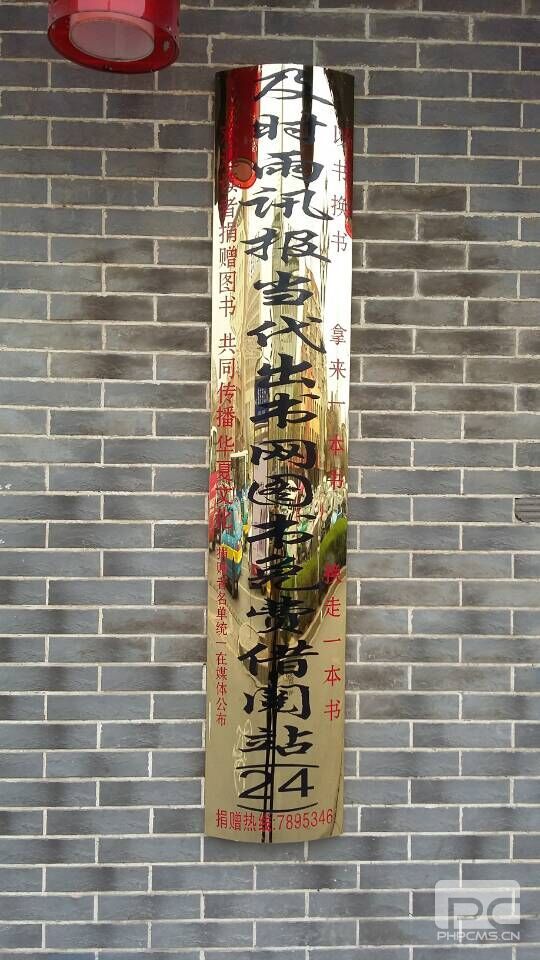 以书换书 拿来一本书 换走一本书
及时雨讯报当代出书网图书免费借阅站
(24)
读者捐赠图书 共同传播华夏文化
捐赠者名单统一在媒体公布
捐赠热线:7895346
PHPCMS.CN